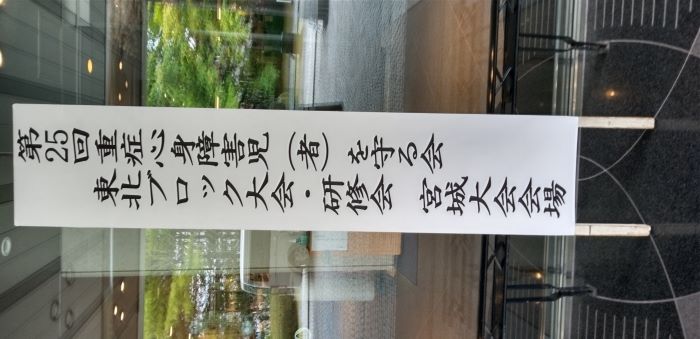 第25回重症心身障害児（者）を守る会
東北ブロック大会・研修会　宮城大会会場